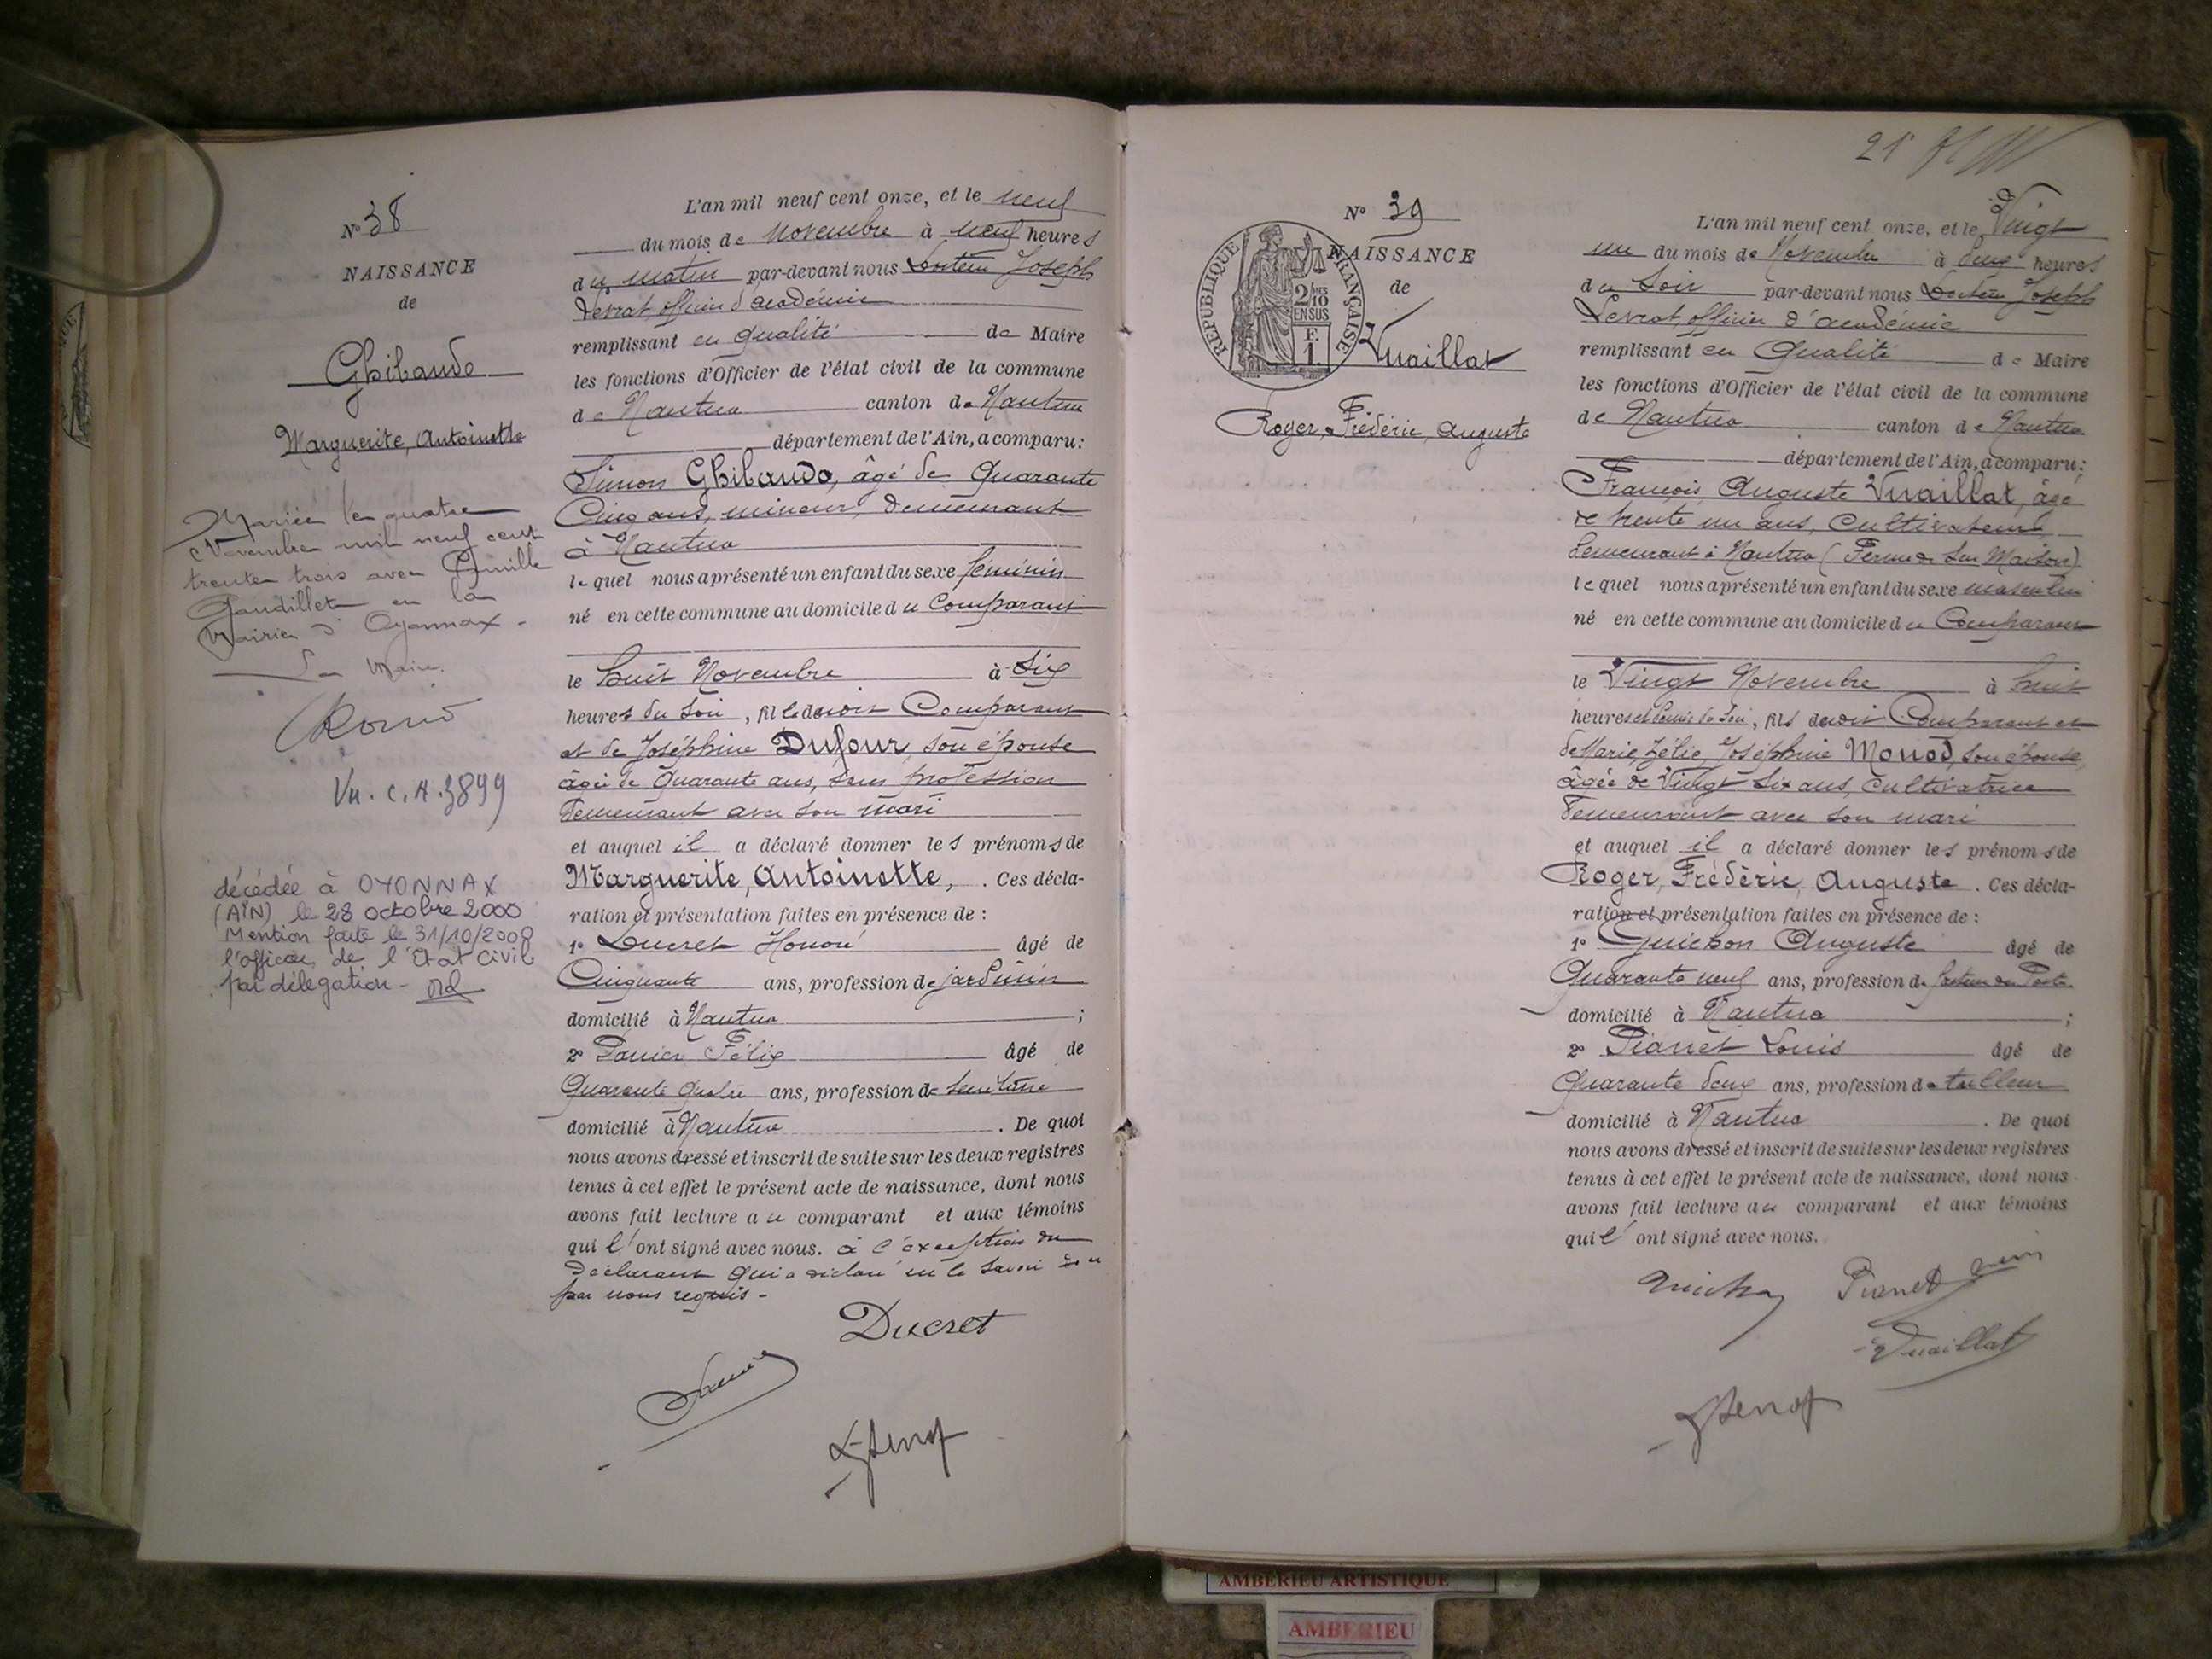 N° 38
NAISSANCE
de
Ghibaudo
Marguerite, Antoinette
Mariée le quatre
Novembre mil neuf cent
trente trois avec Camille
Gaudillet en la
Mairie d'Oyonnax.
Le Maire.
Vu. C. A. 3899
décédée à OYONNAX
(AIN) le 28 octobre 2000
Mention faite le 31/10/2000
l'officier de l'Etat Civil
par délégation -
L'an mil neuf cent onze, et le neuf
du mois de Novembre à neuf heures
du matin par-devant nous Docteur Joseph
Levrat, officier d'académie
remplissant en qualité de Maire
les fonctions d'Officier de l'état civil de la commune
de Nantua canton de Nantua
département de l'Ain, a comparu:
Simon Ghibaudo, âgé de Quarante
Cinq ans, mineur, demeurant
à Nantua
lequel nous a présenté un enfant du sexe féminin
né en cette commune au domicile du Comparant
le huit Novembre à Six
heures du soir, fille de droit Comparant
et de Joséphine Dufour, son épouse
âgée de Quarante ans, sans profession
demeurant avec son mari
et auquel il a déclaré donner les prénoms de
Marguerite, Antoinette, . Ces décla-
ration et présentation faites en présence de :
1° Ducret Honoré âgé de
Cinquante ans, profession de jardinier
domicilié à Nantua ;
2° Félix âgé de
Quarante quatre ans, profession de Secrétaire
domicilié à Nantua . De quoi
nous avons dressé et inscrit de suite sur les deux registres
tenus à cet effet le présent acte de naissance, dont nous
avons fait lecture au comparant et aux témoins
qui l'ont signé avec nous. à l'exception du
déclarant qui a déclaré ne le savoir de ce
par nous requis -
Ducret
21
N° 39
NAISSANCE
de
RÉPUBLIQUE FRANÇAISE
2/10
EN SUS
F
1
Vuaillat
Roger, Frédéric, Auguste
L'an mil neuf cent onze, et le Vingt
un du mois de Novembre à deux heures
du Soir par-devant nous Docteur Joseph
Levrat, officier d'académie
remplissant en Qualité de Maire
les fonctions d'Officier de l'état civil de la commune
de Nantua canton de Nantua
département de l'Ain, a comparu:
François, Auguste Vuaillat, âgé
de trente un ans, Cultivateur,
demeurant à Nantua (Ferme
lequel nous a présenté un enfant du sexe masculin
né en cette commune au domicile du Comparant
le Vingt Novembre à huit
heures et demie du soir, fils de droit Comparant et
de Marie, Zélie, Joséphine Monod, son épouse,
âgée de Vingt Six ans, Cultivatrice
demeurant avec son mari
et auquel il a déclaré donner les prénoms de
Roger, Frédéric, Auguste . Ces décla-
ration et présentation faites en présence de :
1° Guichon Auguste âgé de
Quarante neuf ans, profession de facteur des Postes
domicilié à Nantua ;
2° Pianet Louis âgé de
Quarante deux ans, profession de tailleur
domicilié à Nantua . De quoi
nous avons dressé et inscrit de suite sur les deux registres
tenus à cet effet le présent acte de naissance, dont nous
avons fait lecture au comparant et aux témoins
qui l'ont signé avec nous.
Pianet
Vuaillat
AMBERIEU ARTISTIQUE
AMBERIEU